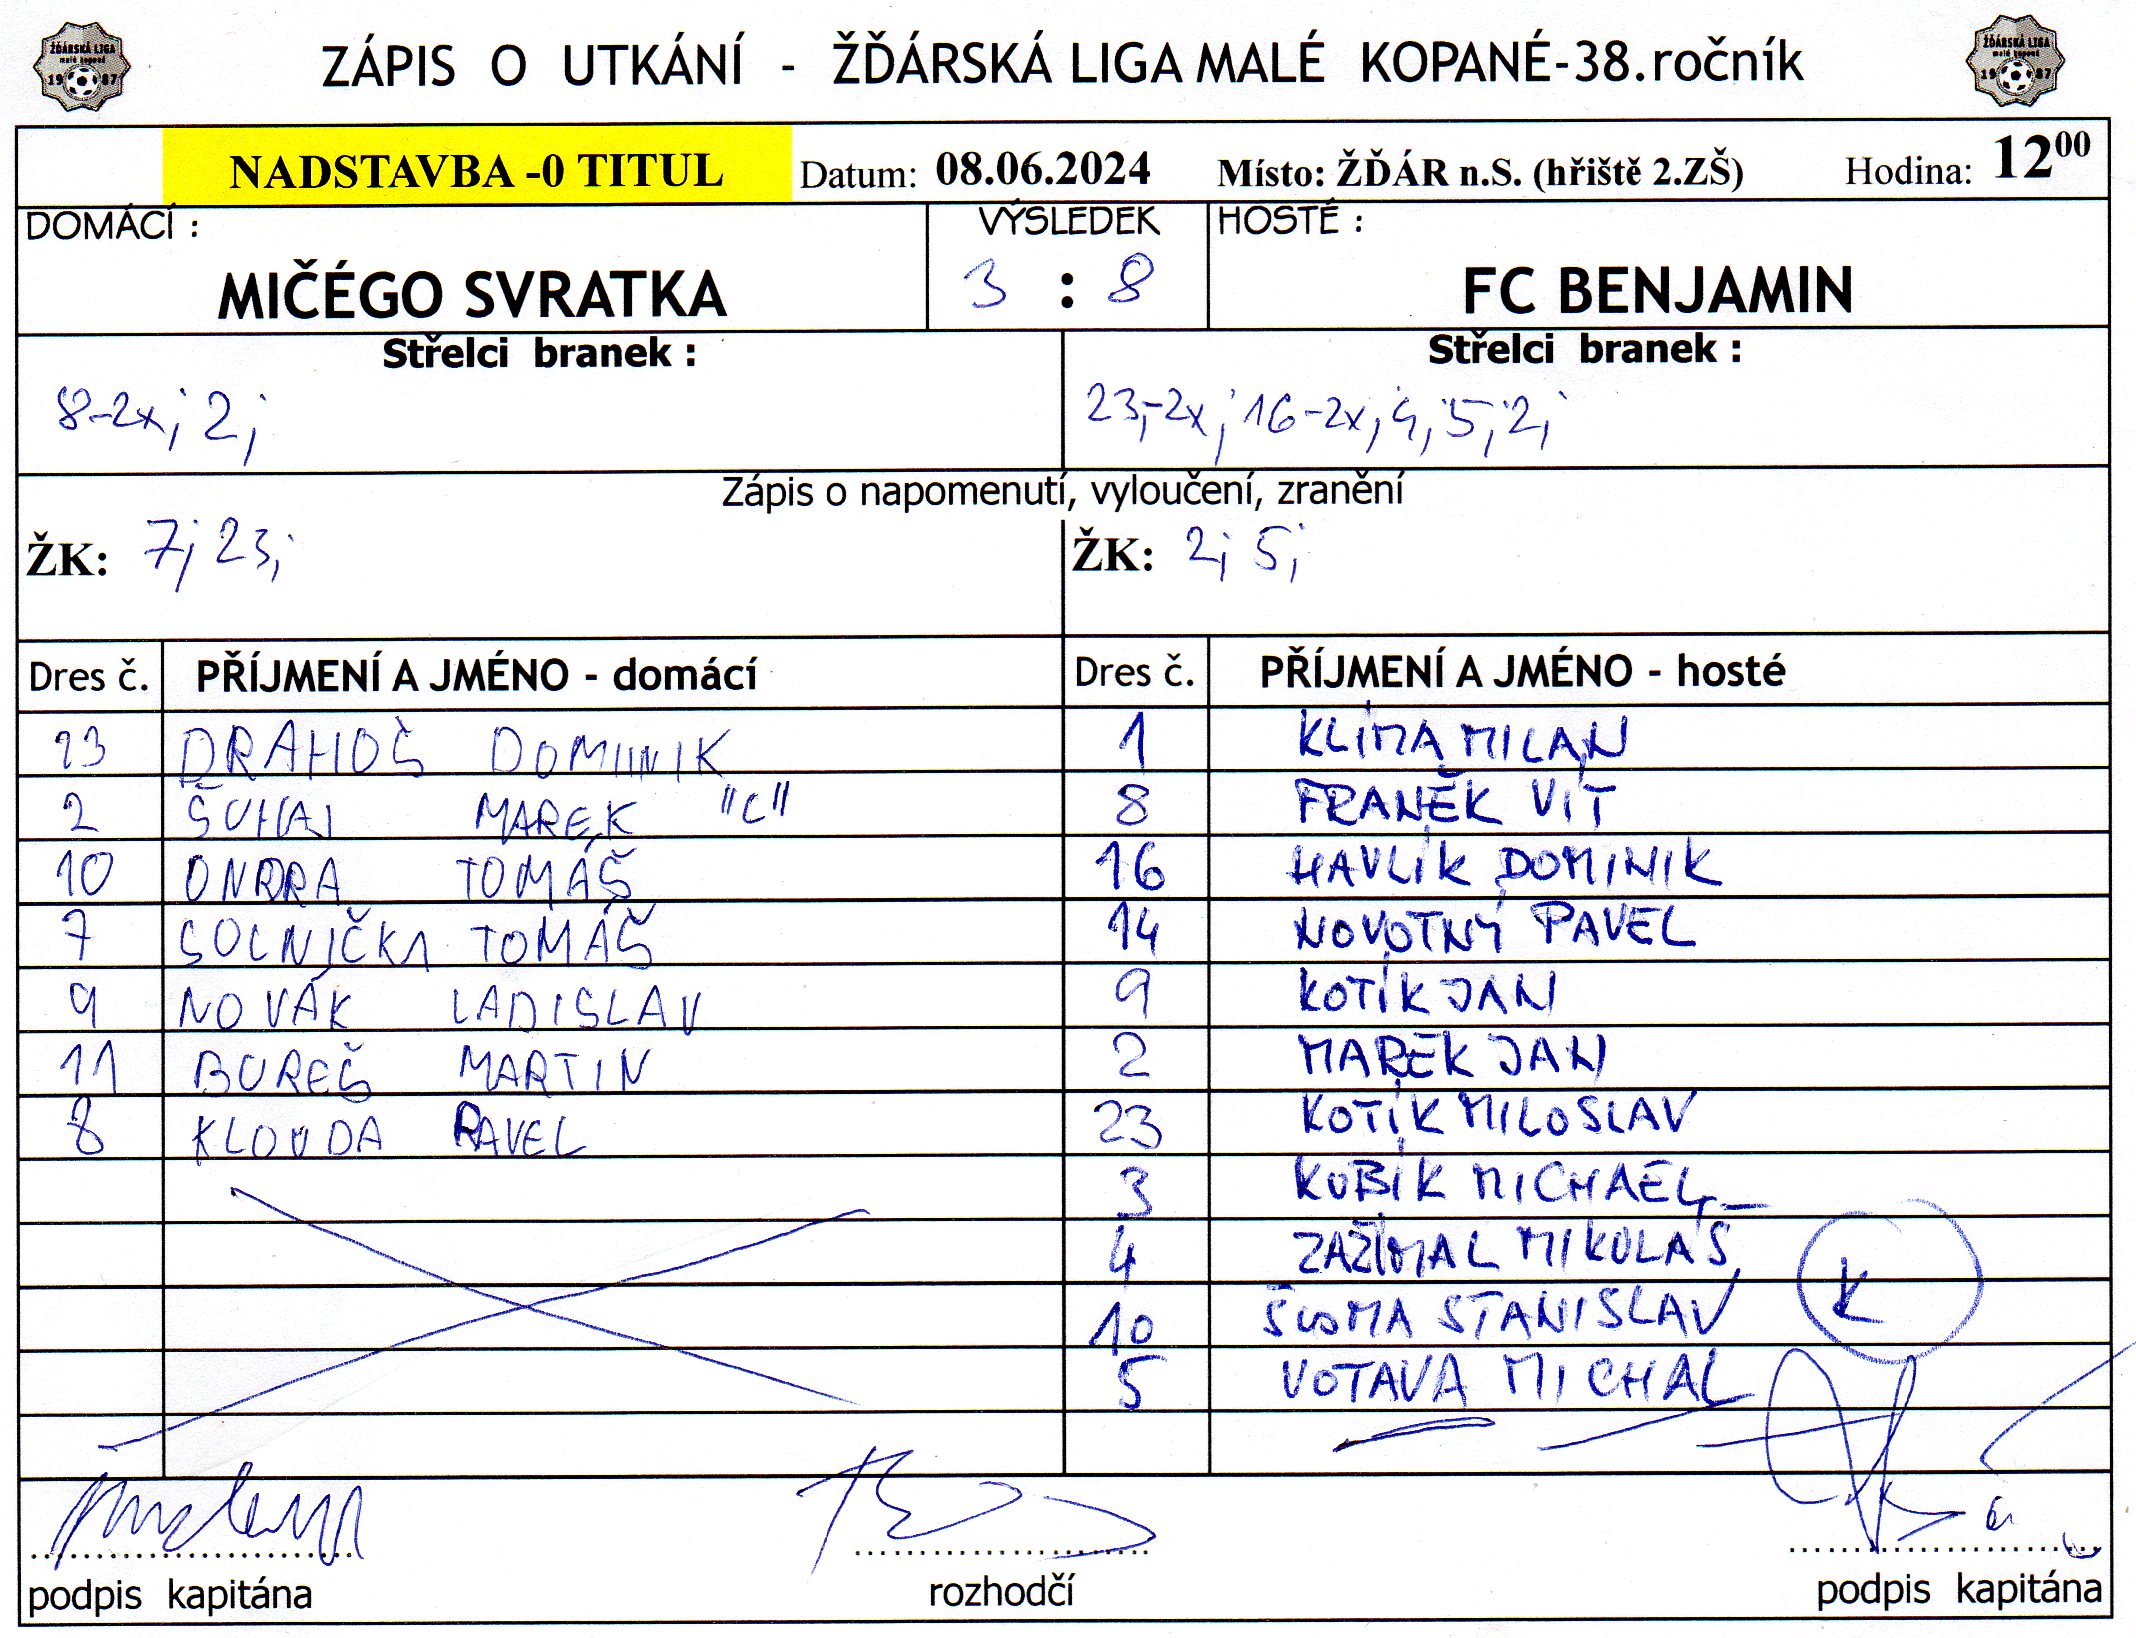 ŽĎÁRSKÁ LIGA
malé kopané
19 87
ZÁPIS O UTKÁNÍ - ŽĎÁRSKÁ LIGA MALÉ KOPANÉ-38.ročník
ŽĎÁRSKÁ LIGA
malé kopané
19 87
NADSTAVBA -0 TITUL Datum: 08.06.2024 Místo: ŽĎÁR n.S. (hřiště 2.ZŠ) Hodina: 12⁰⁰
DOMÁCÍ : VÝSLEDEK HOSTÉ :
MIČÉGO SVRATKA 3 : 8 FC BENJAMIN
Střelci branek : Střelci branek :
8-2x; 2; 23,-2x; 16-2x; 4, 5; 2;
Zápis o napomenutí, vyloučení, zranění
ŽK: 7; 23; ŽK: 2; 5;
Dres č. PŘÍJMENÍ A JMÉNO - domácí Dres č. PŘÍJMENÍ A JMÉNO - hosté
23 DRAHOŠ DOMINIK 1 KLÍMA MILAN
2 ŠUHAJ MAREK "C" 8 FRANĚK VÍT
10 ONDRA TOMÁŠ 16 HAVLÍK DOMINIK
7 SOLNIČKA TOMÁŠ 14 NOVOTNÝ PAVEL
9 NOVÁK LADISLAV 9 KOTÍK JAN
11 BUREŠ MARTIN 2 MAREK JAN
8 KLOUDA PAVEL 23 KOTÍK MILOSLAV
3 KUBÍK MICHAEL
4 ZAŽÍMAL MIKULÁŠ
10 STANISLAV K
5 VOTAVA MICHAL
podpis kapitána rozhodčí podpis kapitána